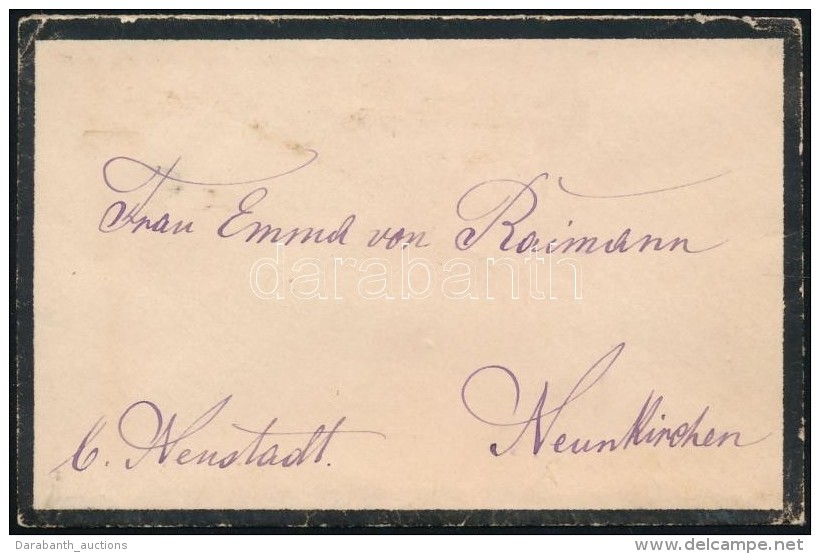 Frau Emma von Raimann
darabanth
Neunkirchen
b. Neustadt.
Darabanth_auctions
delcampe.net